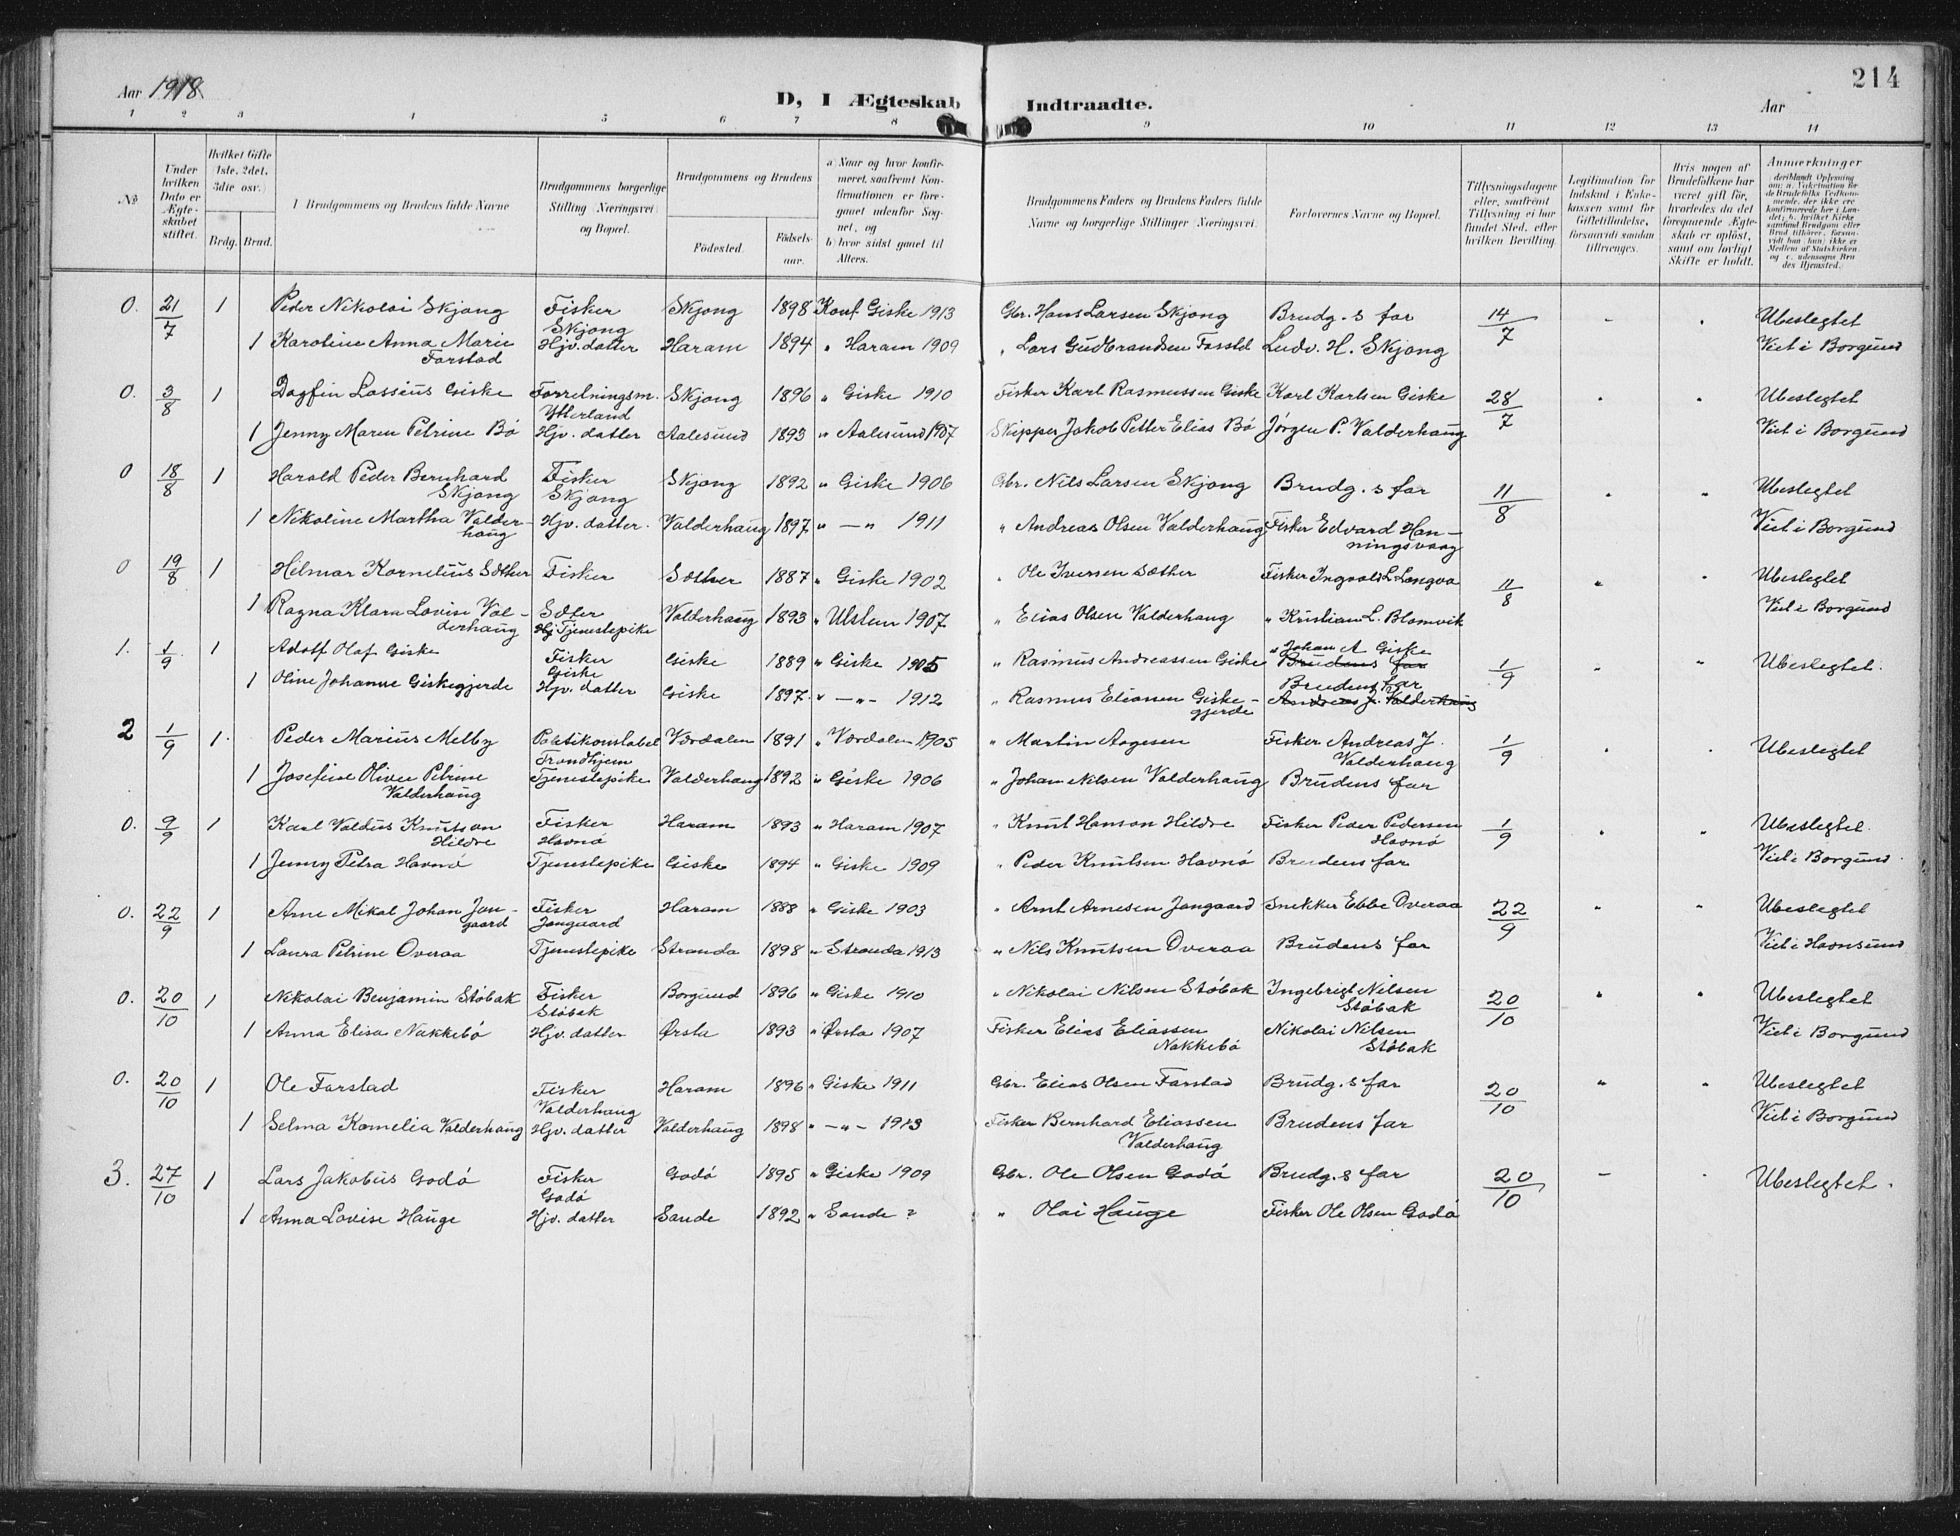 Aar 1918
D, I Ægteskab Indtraadte.
Aar
214
1 2 3 4 5 6 7 8 9 10 11 12 13 14
№
Under hvilken Dato er Ægteskabet stiftet.
Hvilket Gifte (1ste, 2det, 3die osv.)
Brdg. Brud.
1 Brudgommens og Brudens fulde Navne
Brudgommens borgerlige Stilling (Næringsvei) og Bopæl.
Brudgommens og Brudens
Födested.
Födselsaar.
a) Naar og hvor konfirmeret, saafremt Konfirmationen er foregaaet udenfor Sognet, og
b) hvor sidst gaaet til Alters.
Brudgommens Faders og Brudens Faders fulde Navne og borgerlige Stillinger (Næringsvei).
Forlovernes Navne og Bopæl.
Tillysningsdagene eller, saafremt Tillysning ei har fundet Sted, efter hvilken Bevilling.
Legitimation for Indskud i Enkekassen samt for Giftetilladelse, forsaavidt saadan tiltrænges.
Hvis nogen af Brudefolkene har været gift før, hvorledes da det foregaaende Ægteskab er oplöst, samt om lovligt Skifte er holdt.
Anmerkninger
0. 21/7 1 Peder Nikolai Skjong Fisker Skjong Skjong 1898 Konf. Giske 1913 Gbr. Hans Larsen Skjong Brudg.s far 14/7 - " Ubeslegtet
1 Karoline Anna Marie Farstad Hjv. datter Haram 1894 " Haram 1909 " Lars Gudbrandsen Farstad Ludv. H. Skjong Viet i Borgund
0. 3/8 1 Dagfin Lasseus Giske Forretningsm. Ytterland Skjong 1896 " Giske 1910 Fisker Karl Rasmussen Giske Karl Karlsen Giske 28/7 " " Ubeslegtet
1 Jenny Maren Petrine Bö Hjv. datter Aalesund 1893 " Aalesund 1907 Skipper Jakob Petter Elias Bö Jörgen P. Valderhaug Viet i Borgund
0 18/8 1 Harald Peder Bernhard Skjong Fisker Skjong Skjong 1892 " Giske 1906 Gbr. Nils Larsen Skjong Brudg.s far 11/8 " " Ubeslegtet
1 Nikoline Martha Valderhaug Hjv. datter. Valderhaug 1897 " - " 1911 " Andreas Olsen Valderhaug Fisker Edvard Hanningsvaag Viet i Borgund
0 19/8 1 Hilmar Kornelius Sæther Fisker Sæther 1887 " Giske 1902 " Ole Iversen Sæther Fisker Ingvald L. Longva 11/8 " " Ubeslegtet
1 Ragna Klara Lovise Valderhaug Sæter Tjenestepike Valderhaug 1893 " Ulstein 1907 " Elias Olsen Valderhaug " Kristian L. Blomvik Viet i Borgund
1. 1/9 1 Adolf Olaf Giske Fisker Giske Giske 1889 " Giske 1905 " Rasmus Andreassen Giske " Johan A Giske Brudens far 1/9 " " Ubeslegtet.
1 Oline Johanne Giskegjerde Hjv. datter Giske 1897 " - " - 1912 " Rasmus Eliassen Giskegjerde Brudens far Andreas J. Valderhaug
2 1/9 1. Peder Marius Melby Politikonstabel Trondhjem Værdalen 1891 " Værdalen 1905 " Martin Aagesen Fisker Andreas J. Valderhaug 1/9 " " Ubeslegtet
1 Josefine Olivee Petrine Valderhaug Tjenestepike Valderhaug 1892 " Giske 1906 " Johan Nilsen Valderhaug Brudens far
0. 9/9 1 Karl Valdus Knutson Hildre Fisker Havnö Haram 1893 " Haram 1907 " Knut Hanson Hildre Fisker Peder Pedersen Havnö 1/9 " " Ubeslegtet.
1 Jenny Petra Havnö Tjenestepike Giske 1894 " Giske 1909 " Peder Knutsen Havnö Brudens far Viet i Borgund.
0. 22/9 1 Arne Mikal Johan Jangaard Fisker Jangaard Haram 1888 " Giske 1903 " Arnt Arnesen Jangaard Snekker Ebbe Overaa 22/9 " " Ubeslegtet
1 Laura Petrine Overaa Tjenestepike Stranda 1898 " Stranda 1913 " Nils Knutsen Overaa Brudens far Viet i Havnsund
0. 20/10 1 Nikolai Benjamin Stöbak Fisker Stöbak Borgund 1896 " Giske 1910 " Nikolai Nilsen Stöbak Ingebrigt Nilsen Stöbak 20/10 " " Ubeslegtet
1 Anna Elisa Nakkebö Hjv. datter Ørsta 1893 " Ørsta 1907 Fisker Elias Eliassen Nakkebö Nikolai Nilsen Stöbak Viet i Borgund
0. 20/10 1 Ole Farstad Fisker Valderhaug Haram 1896 " Giske 1911 Gbr. Elias Olsen Farstad Brudg.s far 20/10 " " Ubeslegtet
1 Selma Kornelia Valderhaug Hjv. datter Valderhaug 1898 " - " - 1913 Fisker Bernhard Eliassen Valderhaug Brudens far Viet i Borgund
3. 27/10 1 Lars Jakobus Godö Fisker Godö Godö 1895 " Giske 1909 Gbr. Ole Olsen Godö Brudg.s far 20/10 - " Ubeslegtet.
1 Anna Lovise Hauge Hjv. datter Sande 1892 " Sande ? " Olai Hauge Fisker Ole Olsen Godö